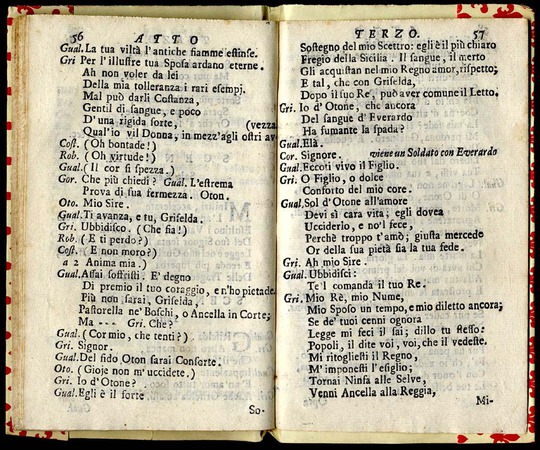 56 ATTO
Gual. La tua viltà l'antiche fiamme estinse.
Gri Per l'illustre tua Sposa ardano eterne.
Ah non voler da lei
Della mia tolleranza i rari esempj.
Mal può darli Costanza,
Gentil di sangue, e poco
D'una rigida sorte, (vezza
Qual'io vil Donna, in mezz'agli ostri av
Cost. (Oh bontade!)
Rob. (Oh virtude!)
Gual. (Il cor si spezza.)
Gor. Che più chiedi? Gual. L'estrema
Prova di sua fermezza. Oton.
Oto. Mio Sire.
Gual. Ti avanza, e tu, Griselda.
Gri. Ubbidisco. (Che sia!)
Rob. (E ti perdo?)
Cost. (E non moro?)
a 2 Anima mia.)
Gual. Assai soffristi. E' degno
Di premio il tuo coraggio, e n'ho pietade.
Più non sarai, Griselda,
Pastorella ne' Boschi, o Ancella in Corte;
Ma --- Gri. Che?
Gual. (Cor mio, che tenti?)
Gri. Signor.
Gual. Del fido Oton sarai Consorte.
Oto. (Gioje non m'uccidete.)
Gri. Io d'Otone?
Gual. Egli è il forte
So-
TERZO. 57
Sostegno del mio Scettro: egli è il più chiaro
Fregio della Sicilia. Il sangue, il merto
Gli acquistan nel mio Regno amor, rispetto;
E tal, che con Griselda,
Dopo il suo Re, può aver comune il Letto.
Gri. Io d'Otone, che ancora
Del sangue d'Everardo
Ha fumante la spada?
Gual. Elà.
Cor. Signore. viene un Soldato con Everardo
Gual. Eccoti vivo il Figlio.
Gri. O Figlio, o dolce
Conforto del mio core.
Gual. Sol d'Otone all'amore
Devi sì cara vita; egli dovea
Ucciderlo, e no'l fece,
Perchè troppo t'amò; giusta mercede
Or della sua pietà sia la tua fede.
Gri. Ah mio Sire.
Gual. Ubbidisci:
Te'l comanda il tuo Re.
Gri. Mio Rè, mio Nume,
Mio Sposo un tempo, e mio diletto ancora;
Se de' tuoi cenni ognora
Legge mi feci il sai; dillo tu stesso:
Popoli, il dite voi, voi, che il vedeste.
Mi ritogliesti il Regno,
M'imponesti l'esiglio;
Tornai Ninfa alle Selve,
Venni Ancella alla Reggia,
Mi-